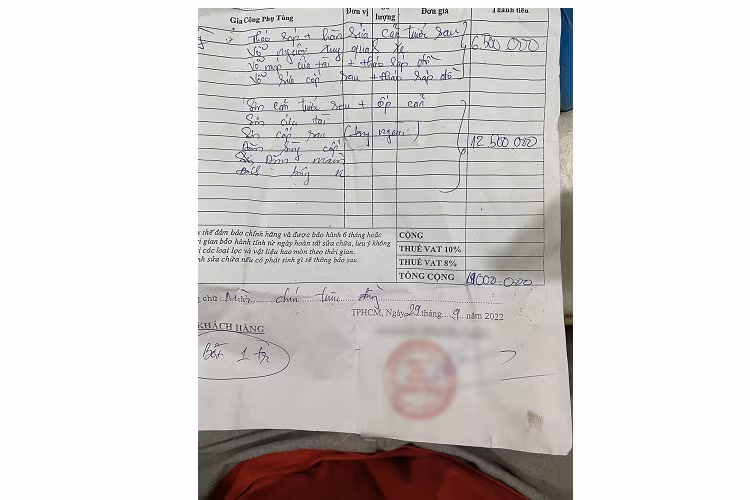 Gia Công Phụ Tùng Đơn vị lượng Đơn giá Thành tiền
Tháo ráp + hàn sửa cản trước sau 6.500.000
Vỗ ngoài xung quanh xe
Vỗ móp cửa tài + tháo ráp đồ
Vỗ sửa cốp sau + tháo ráp đồ
Sơn cản trước sau + ốp cản
Sơn cửa tài
Sơn cốp sau (trong ngoài) 12.500.000
cốp
y thế đảm bảo chính hãng và được bảo hành 6 tháng hoặc
i gian bảo hành tính từ ngày hoàn tất sửa chữa, lưu ý không
i các loại lọc và vật liệu hao mòn theo thời gian.
nh sửa chữa nếu có phát sinh gì sẽ thông báo sau.
CỘNG
THUẾ VAT 10%
THUẾ VAT 8%
TỔNG CỘNG 19.000.000
chữ: Mười chín triệu đồng
TPHCM, Ngày 29 tháng 9 năm 2022
KHÁCH HÀNG
Bớt 1 tr